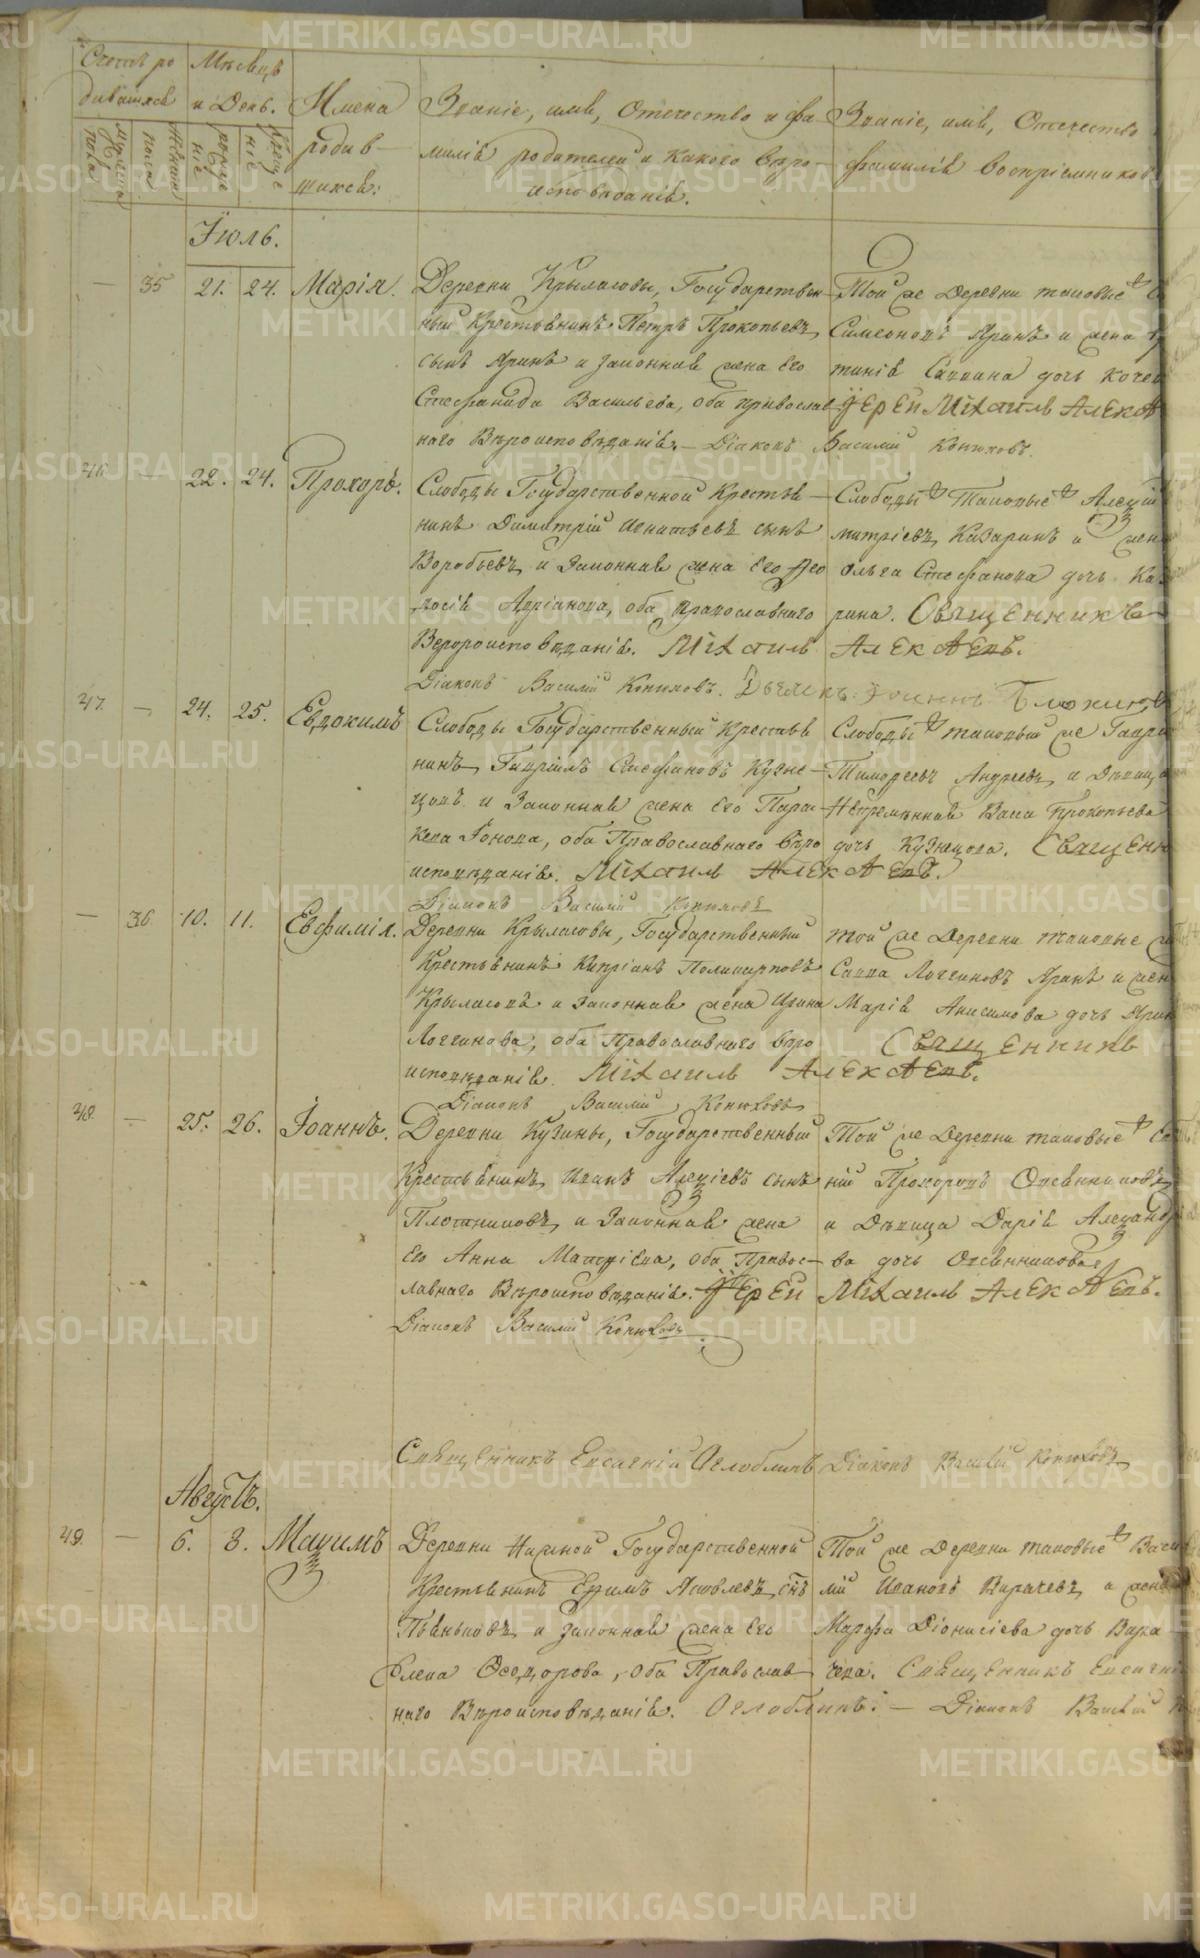 Счетъ ро
дившихся
Мѣсяцъ
и День.
Имена
родив-
шихся:
Званіе, имя, Отечество и фа-
милія родителей и Какого вѣро-
исповѣданія.
Званіе, имя, Отечество
фамилія воспріемников
Мужеска
пола
Женска
пола
рожде
ніе
креще
ніе
Іюль.
— 35 21. 24. Марія.
Деревни Крыласовы, Государствен-
ный Крестьянинъ Петръ Прокопьевъ
сынъ Яринъ и законная жена Его
Стефанида Васильева, оба православ-
наго Вѣроисповѣданія. — Діаконъ Василій Конюховъ.
Той же Деревни таковые
Симеоновъ Яринъ и жена
тинія Саввина дочь
Іерей Михаилъ Алек
46 — 22. 24. Прохоръ.
Слободы Государственной Крестья-
нинъ Димитрій Игнатьевъ сынъ
Воробьевъ и Законная жена Его Ѳео
досія Адріанова, оба православнаго
Вероисповѣданія. Михаилъ
Діаконъ Василій Конюховъ.
Слободы Таковые Алексій
митріевъ Казаринъ и жена
Ольга Стефанова дочь Ка
рина. Священникъ
47. — 24. 25. Евдокимъ
Слободы Государственный Крестья
нинъ Гавріилъ Стефановъ Кузне-
цовъ и Законная жена Его Парас
кева Іонова, оба Православнаго вѣро
исповѣданія. Михаилъ
Діаконъ Василій Конюховъ
Слободы таковый же Гаври
Тимофеевъ Андреевъ и Дѣвица
Васса Прокопьева
дочь Кузнецова. Священн
— 36 10. 11. Евфимія.
Деревни Крыласовы, Государственный
Крестьянинъ Кипріанъ Поликарповъ
Крыласовъ и Законная жена Ирина
Логгинова, оба Православнаго вѣро
исповѣданія. Михаилъ
Діаконъ Василій Конюховъ
той же Деревни таковые
Савва Логгиновъ Яринъ и жен
Марія Анисимова дочь Ярин
Священникъ
48. — 25. 26. Іоаннъ.
Деревни Кузины, Государственный
Крестьянинъ Иванъ Алексіевъ сынъ
Плотниковъ, и Законная жена
Его Анна Матвіева, оба Правос-
лавнаго Вѣроисповѣданія. Іерей Михаилъ
Діаконъ Василій Конюховъ
Той же Деревни таковые
ній Прохоровъ Овсянниковъ
и Дѣвица Дарія Александро
ва дочь Овсянникова
Священникъ Евсигній Оглоблинъ Діаконъ Василій Конюховъ
Августъ.
49. — 6. 8. Максимъ
Деревни Государственной
Крестьянинъ Ефимъ Яковлевъ снъ
Пьянковъ и законная жена Его
Елена Ѳеодорова, оба Православ
наго Вѣроисповѣданія. Оглоблинъ. — Діаконъ Василій
Той же Деревни таковые Васи
лій Ивановъ Варачевъ и жена
Марфа Діонисіева дочь Вара
чева. Священникъ Евсигні
METRIKI.GASO-URAL.RU